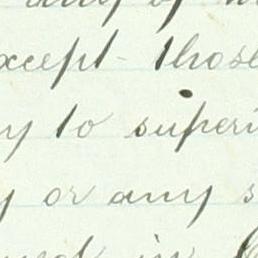 any of
except those
y to superi
y or any s
in